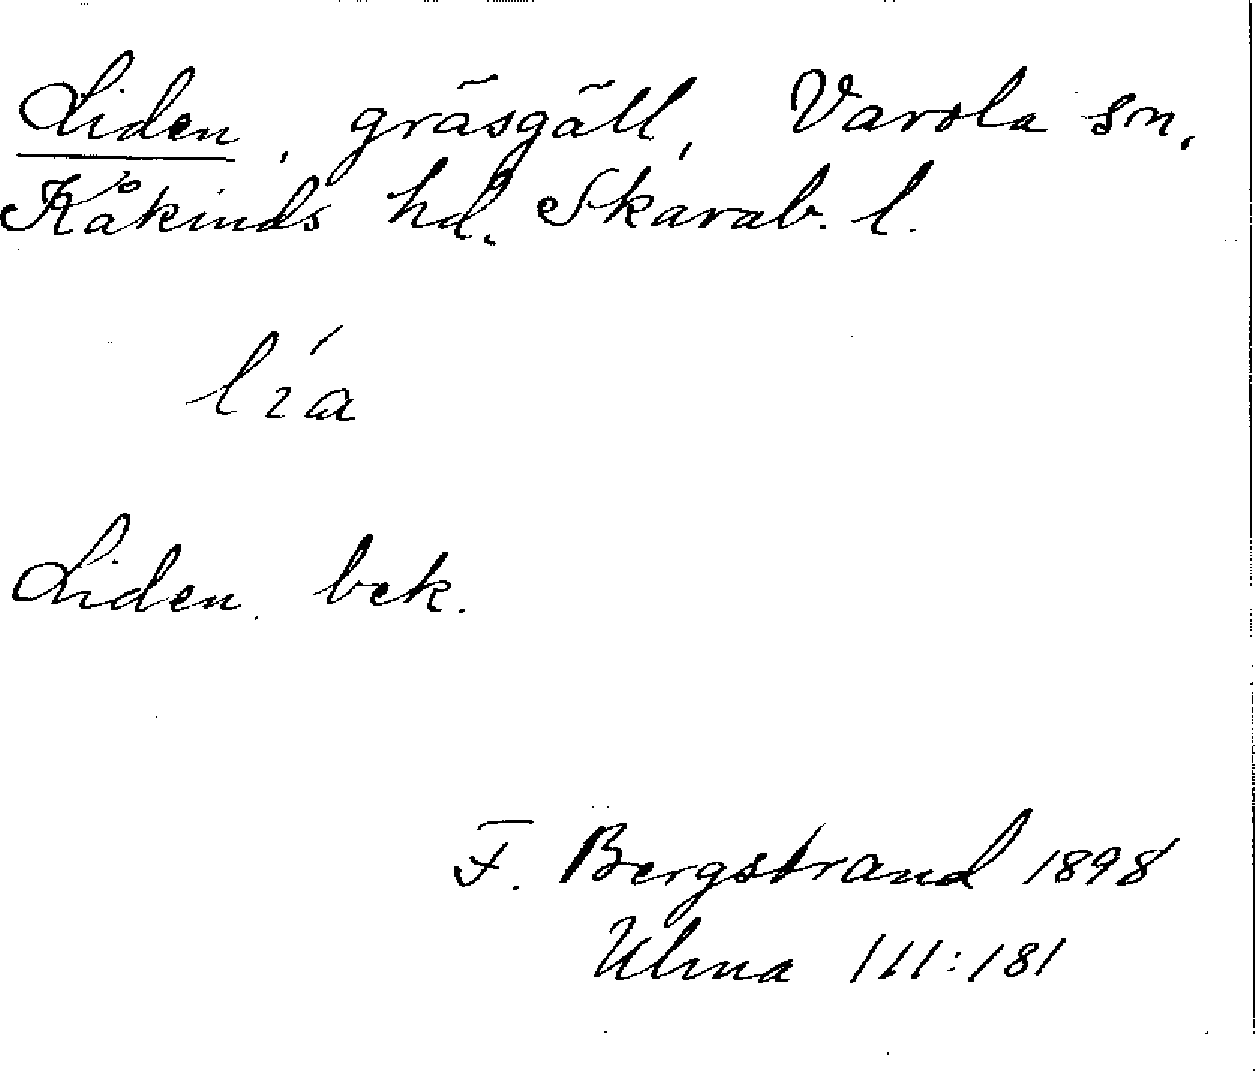 Liden, gräsgäll, Varola sn,
Kåkinds hd. Skarab. l.
lıa´
Liden. bek.
F. Bergstrand 1898
Ulma 111:181